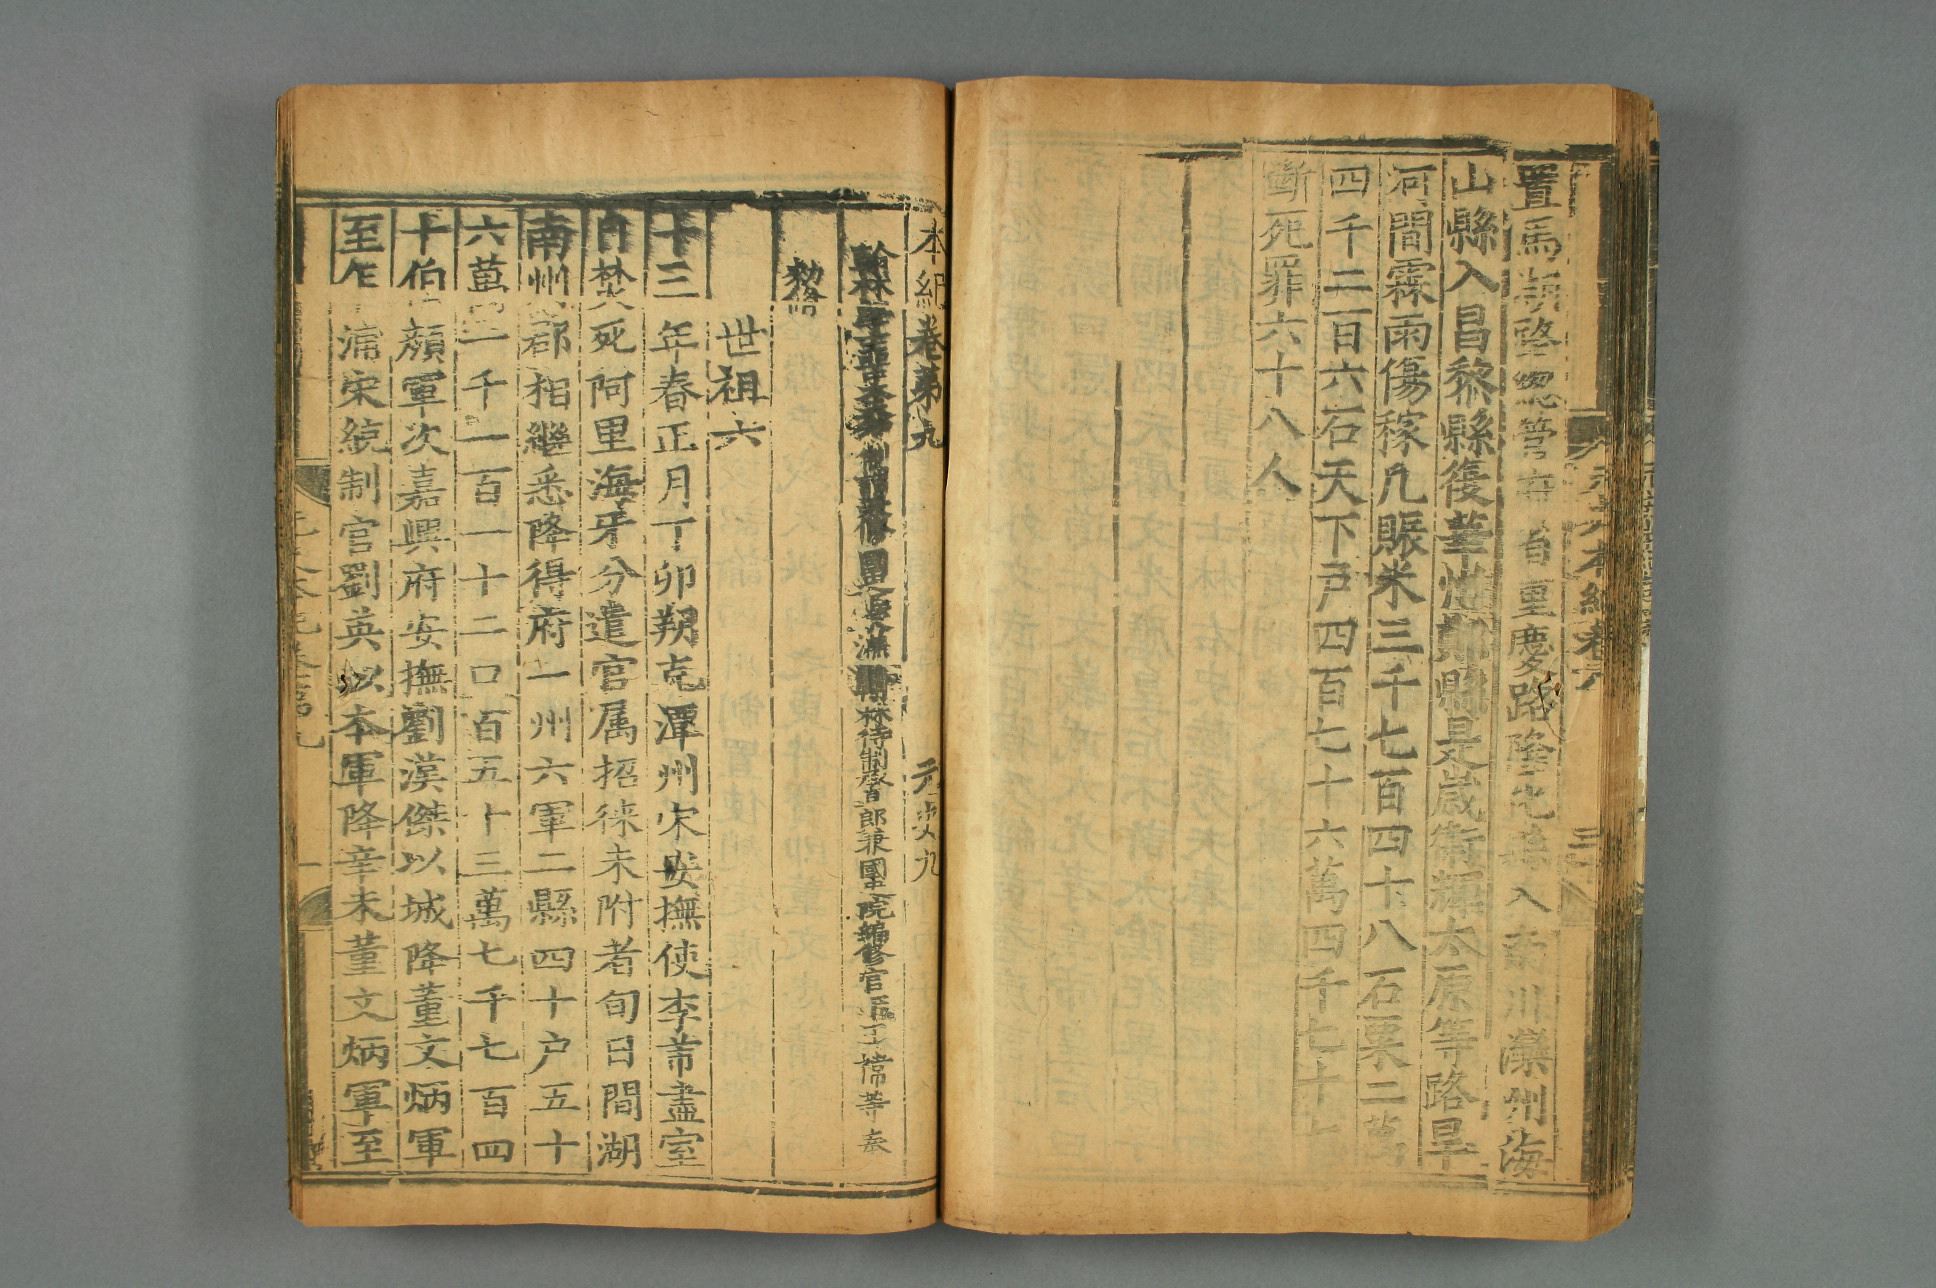 置馬湖路總管府省重慶路隆化縣入南川灤州海
山縣入昌黎縣復華州鄭縣是歳衛輝太原等路旱
河間霖雨傷稼凡賑米三千七百四十八石粟二萬
四千二百六石天下戸四百七十六萬四千七十七
斷死罪六十八人
本紀卷第九 元史九
翰林待制承直郎兼國史院編修官臣王褘等奉
勑修
世祖六
十三年春正月丁卯朔克潭州宋安撫使李芾盡室
自焚死阿里海牙分遣官属招徠未附者旬日間湖
南州郡相繼悉降得府一州六軍二縣四十户五十
六萬一千一百一十二口百五十三萬七千七百四
十伯顔軍次嘉興府安撫劉漢傑以城降董文炳軍
至乍浦宋統制官劉英以本軍降辛未董文炳軍至